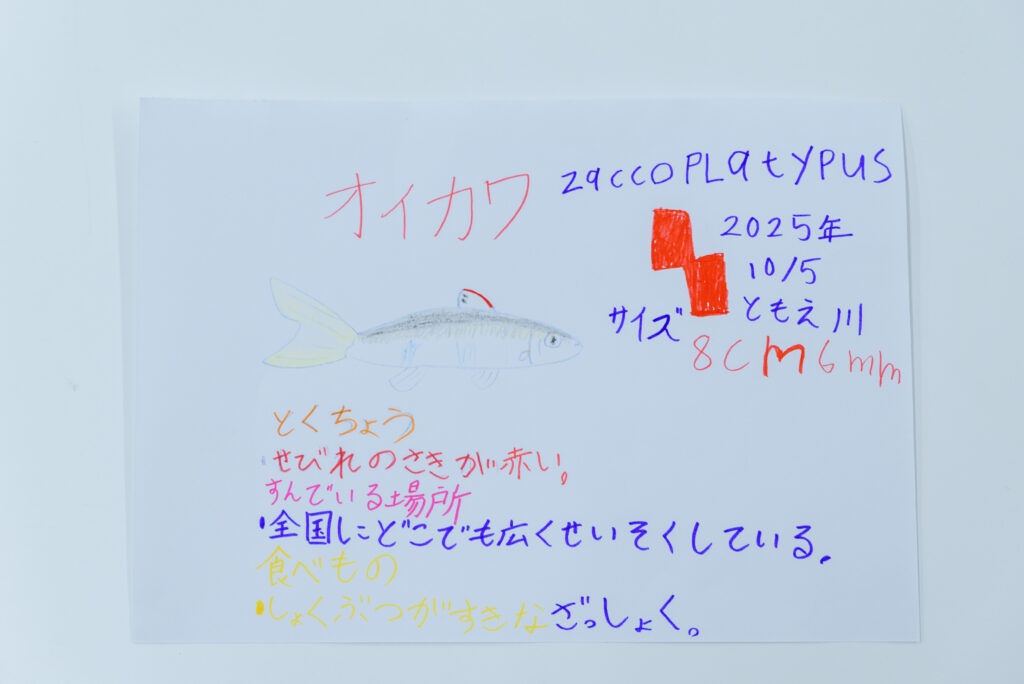 オイカワ
zaccoPLatyPUS
2025年
10/5
ともえ川
サイズ
8cm6mm
とくちょう
・せびれのさきが赤い。
すんでいる場所
・全国にどこでも広くせいそくしている。
食べもの
・しょくぶつがすきなざっしょく。